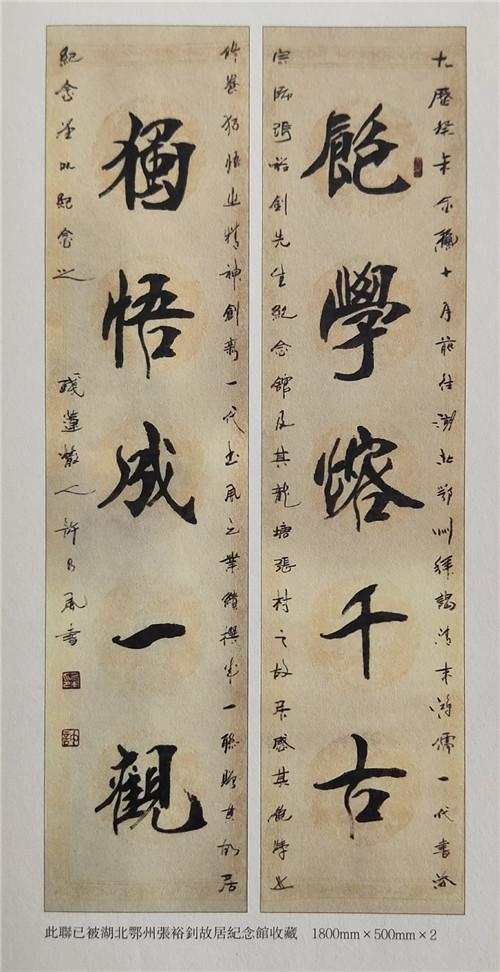 歷癸未金龝十月前往湖北鄂州拜謁清末鴻儒一代書法
飽學熔千古
宗師張裕釗先生紀念館及其龍塘張村之故居感其飽學之
修養獨悟之精神創新一代書風之業績撰成一聯贈其故居
獨悟成一觀
紀念並以紀念之 蓮散人許乃風書
此聯已被湖北鄂州張裕釗故居紀念館收藏 1800mm×500mm×2